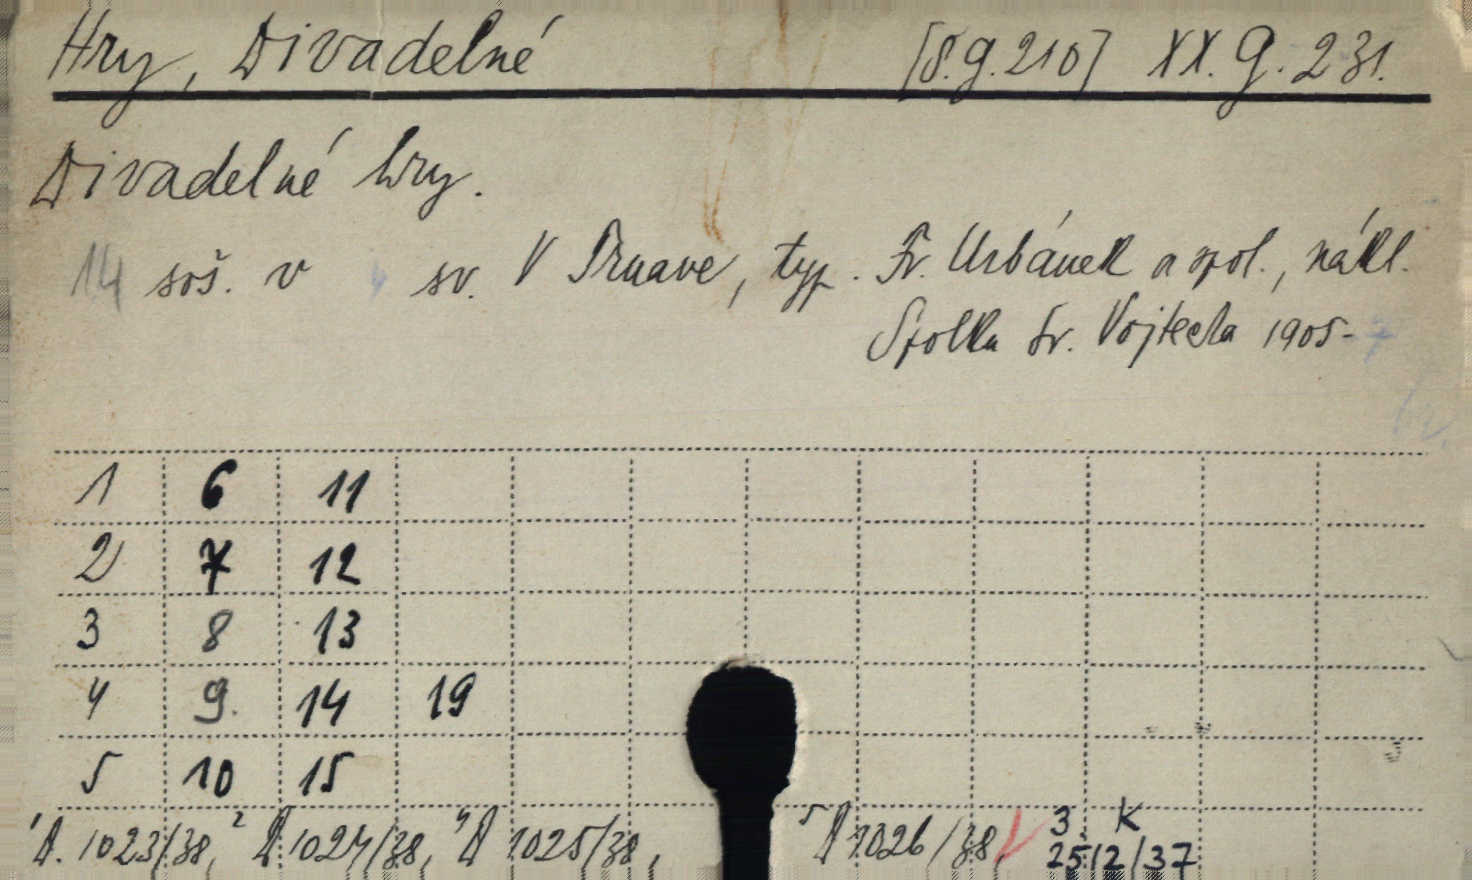 Hry, Divadelné [8.g.210] XX. G. 231.
Divadelné hry.
14 soš. v 4 sv. V Trnave, typ. Fr. Urbánek a spol., nákl.
Spolku Sv. Vojtecha 1905-
1 6 11
2 7 12
3 8 13
4 9. 14 19
5 10 15
1 D. 1023/38, 2 D 1024/38, 4 D 1025/38, 5 D 1026/38, 3 K
2512/37